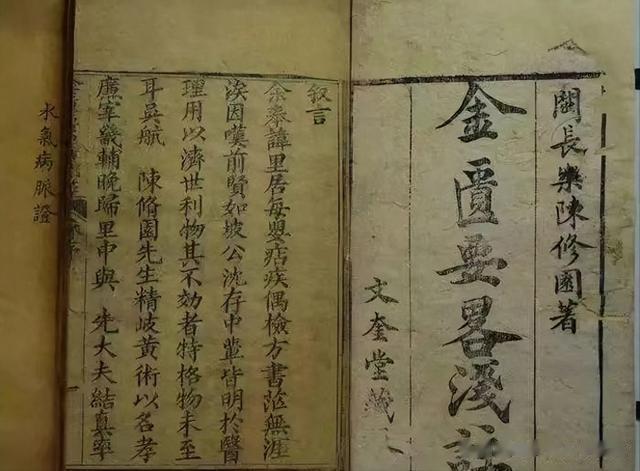 閩長樂陳修園著
金匱要畧淺註
文奎堂藏
叙言
余奉諱里居每嬰痁疾偶檢方書茫無涯
涘因嘆前賢如坡公沈存中輩皆明於醫
理用以濟世利物其不効者特格物未至
耳吳航 陳脩園先生精岐黃術以名孝
廉宰畿輔晚歸里中與 先大夫結真率
水氣病脈證